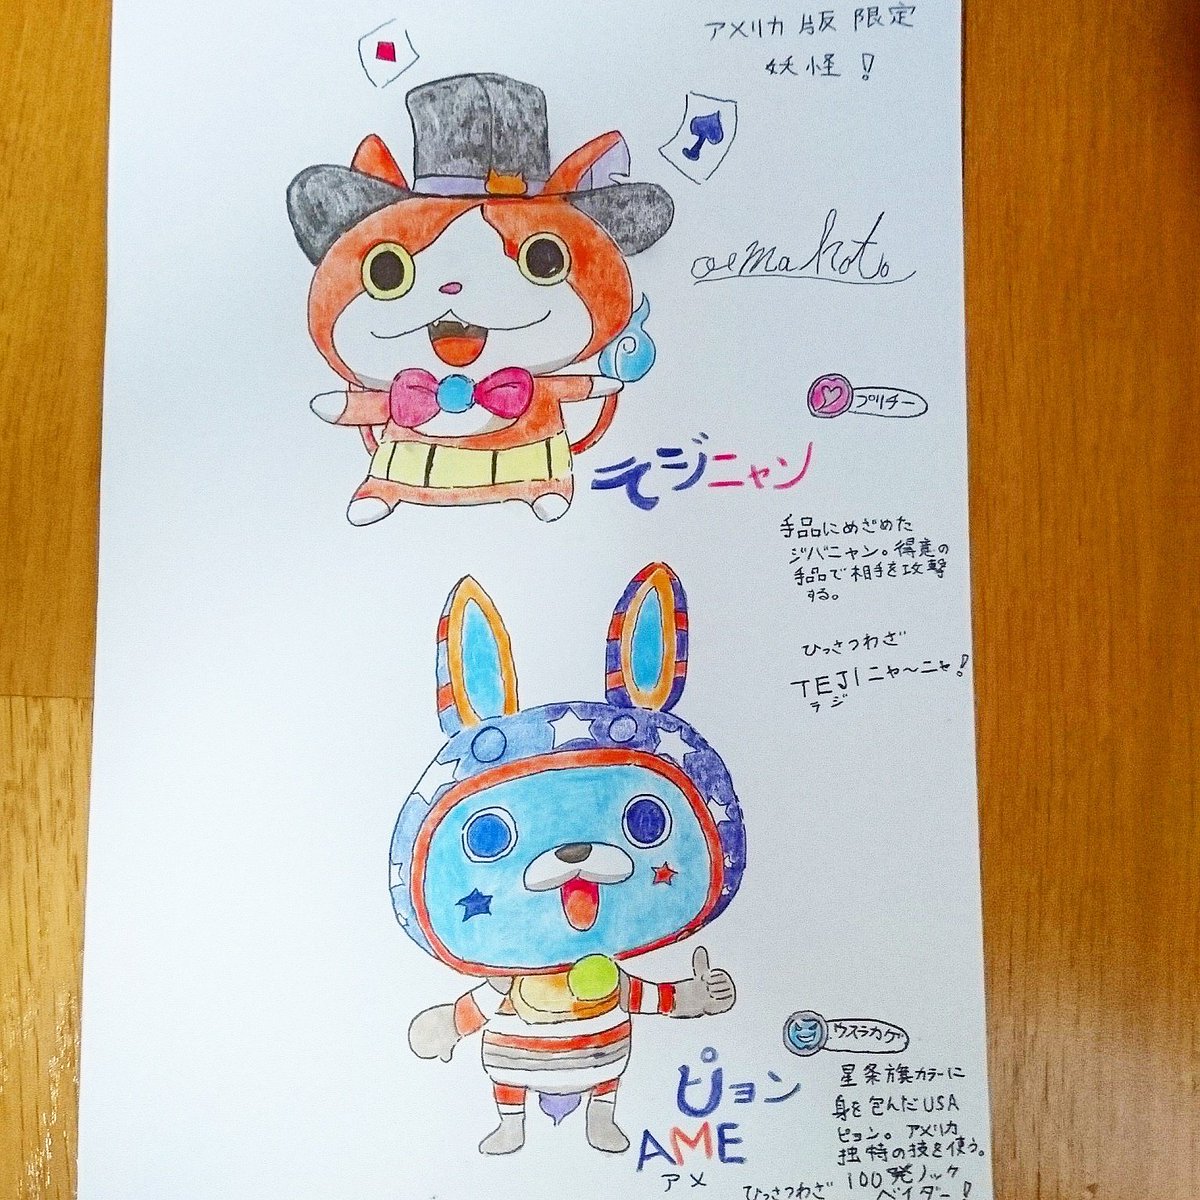 アメリカ版限定
妖怪!
oemakoto
プリチー
テジニャン
手品にめざめた
ジバニャン。得意の
手品で相手を攻撃
する。
ひっさつわざ
TEJIニャ〜ニャ!
テジ
ウスラカゲ
ピョン
AME
アメ
星条旗カラーに
身を包んだUSA
ピョン。アメリカ
独特の技を使う。
ひっさつわざ
100発ノック
ベイダー!